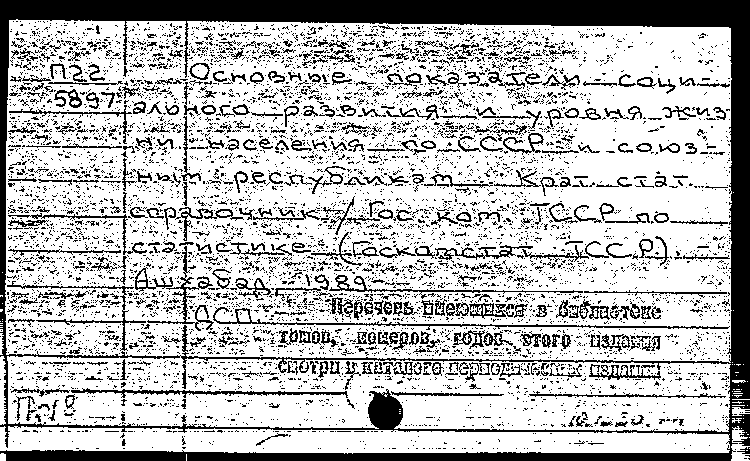 П22
5897
Основные показатели соци-
ального развития и уровня жиз
ни населения по СССР и союз-
ным республикам. Крат. стат.
справочник / Гос. ком. ТССР по
статистике (Госкомстат ТССР). -
Ашхабад, 1989 -
ДСП.
Перечень имеющихся в библиотеке
томов, номеров, годов этого издания
смотри в каталоге периодических изданий